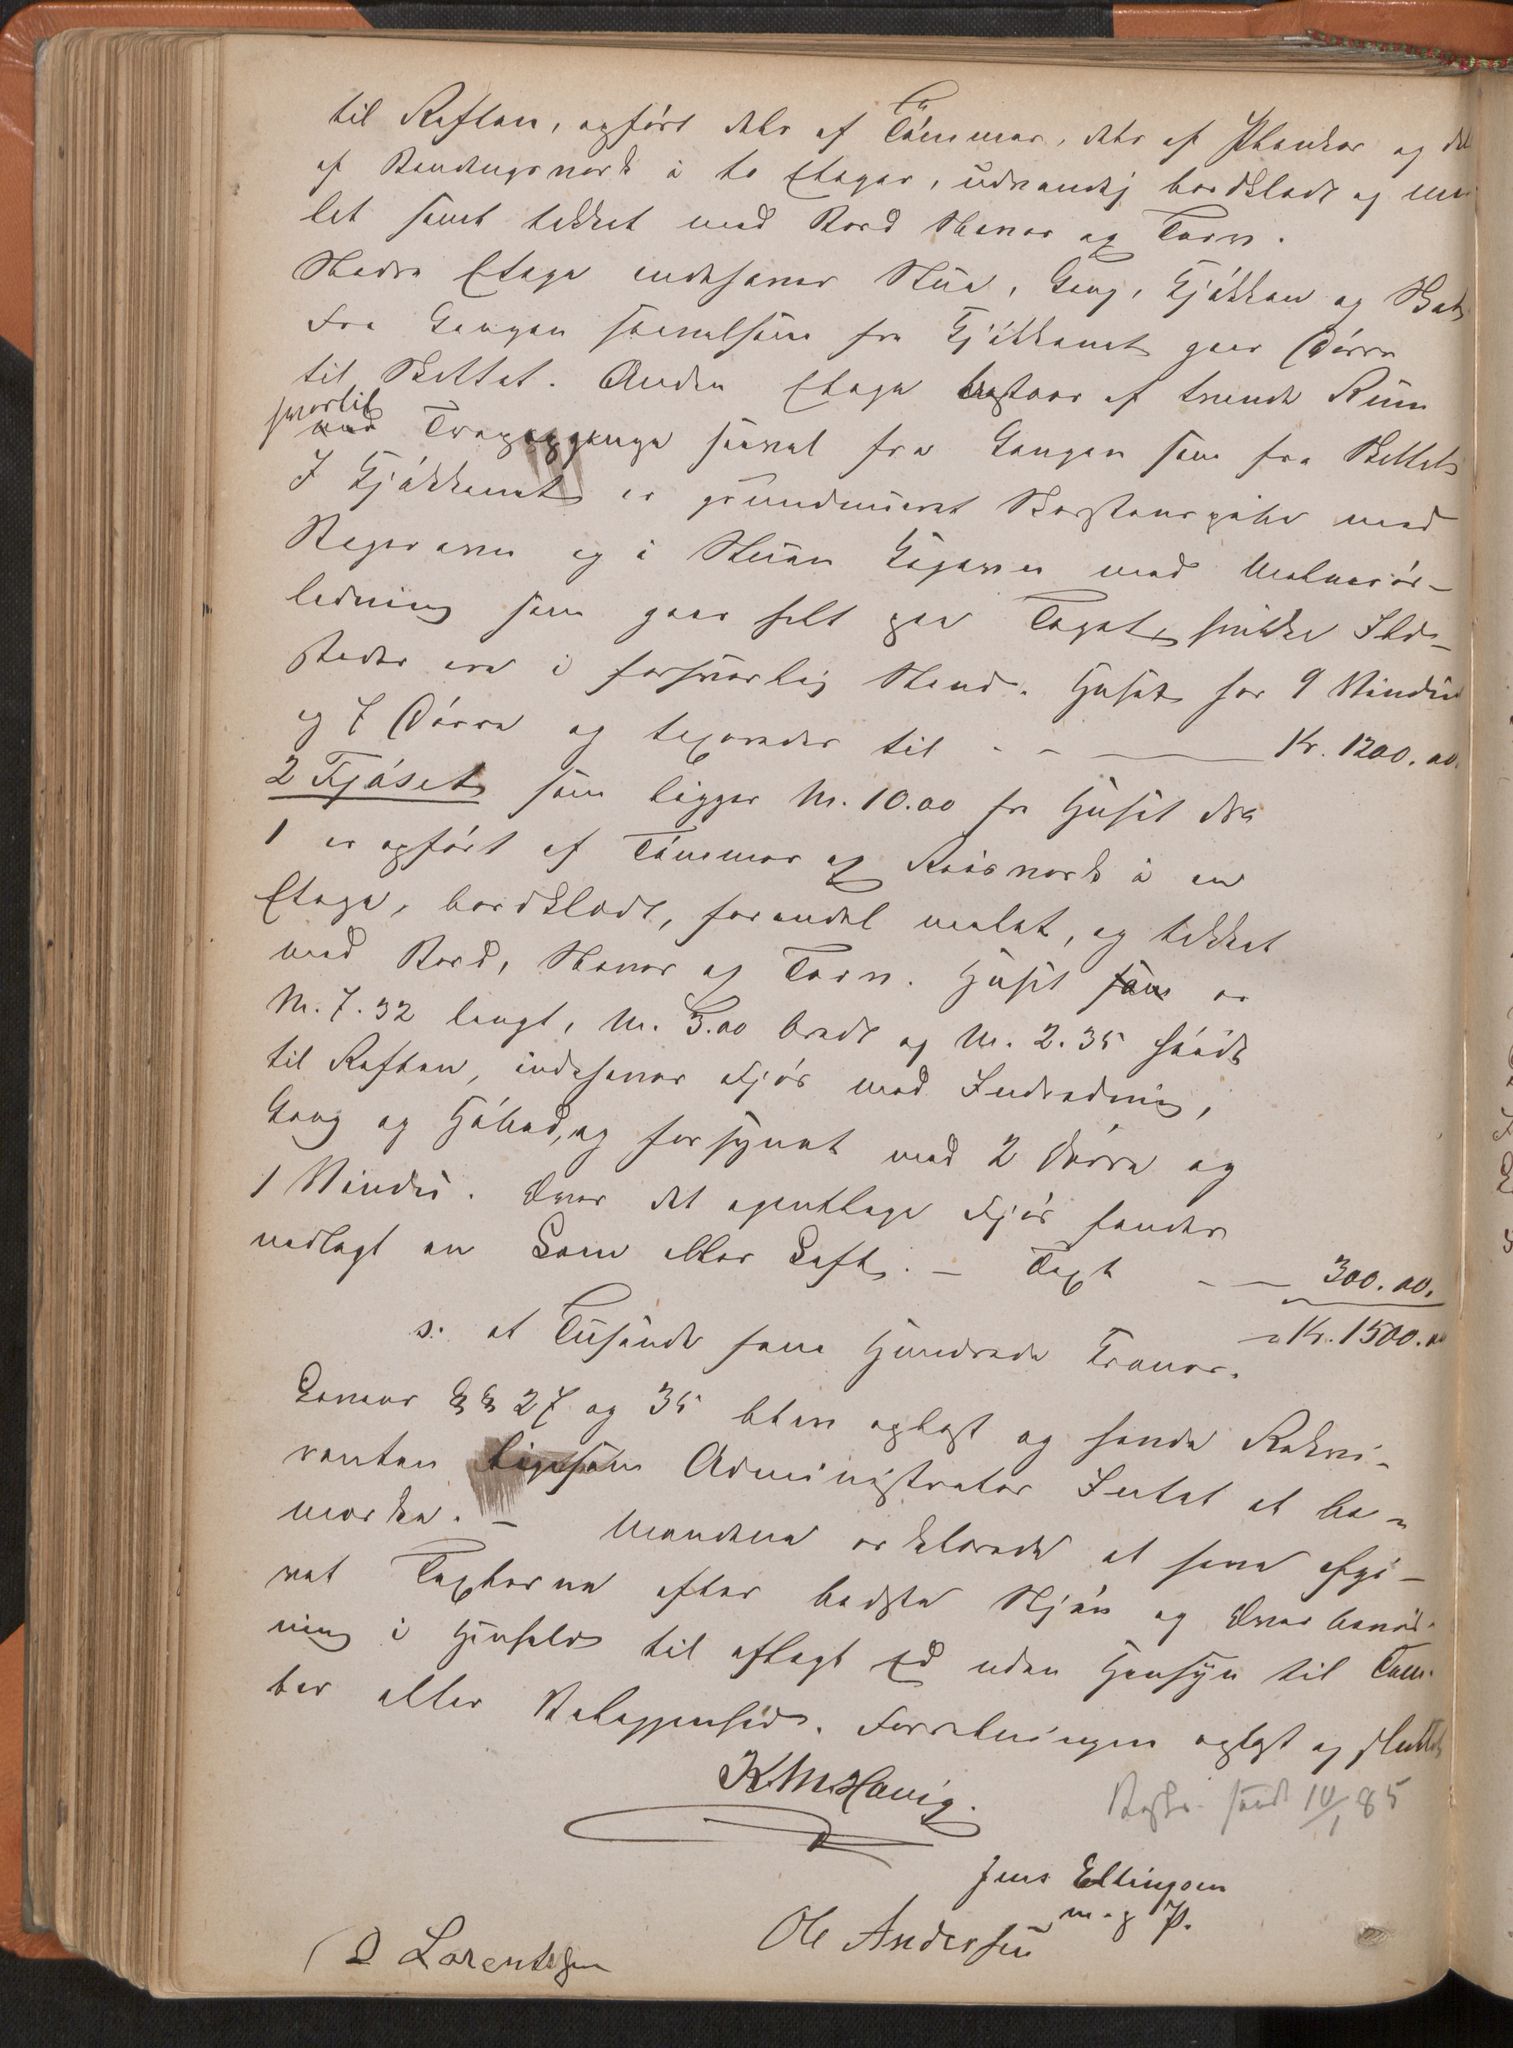 til Raften, opført dels af Tömmer, dels af Planker og del
af Bindingsverk i to Etager, udvendig bordklædt og ma
let samt tækket med Bord Næver og Torv.
Nedre Etage indehaver Stue, Gang, Kjøkken og
Fra Gangen saavelsom fra Kjøkkenet gaar Dørre
til Skottet. Anden Etage bestaar af trende Rum
hvortil
med Trapegange saavel fra Gangen som fra Skottet
I Kjøkkenet er grundmuret Skorstenspibe med
Bageroven og i Stuen Kogeovn med Malmrør-
ledning som gaar helt paa Taget, hvilke Ild-
steder ere i forsvarlig Stand. Huset har 9 Vindu
og 7 Dørre og taxeredes til - - — Kr. 1200.00.
2 Fjøset som ligger M. 10.00 fra Huset No
1 er opført af Tømmer og Reisverk i en
Etage, bordklædt, forendel malet, og tækket
med Bord, Næver og Torv. Huset som er
M. 7.32 langt, M. 3.00 bredt og M. 2.35 høidt
til Raften, indehaver Fjøs med Indredning,
Gang og Høbod, og forsynet med 2 Dørre og
1 Vindu. Over det egentlige Fjøs fandtes
nedlagt en Lem eller Loft. - Taxt - — 300.00.
s. et Tusinde fem Hundrede Kroner. - Kr. 1500.00
Lovens §§ 27 og 35 blev oplæst og havde Rekvi-
renten ligesom Administrator Intet at be-
mærke. - Mændene erklærede at have afgi-
vet Taxterne efter bedste Skjøn og Overbevis-
ning i Henhold til aflagt Ed uden Hensyn til Tom-
ter eller Beliggenhed. Forretningen oplæst og sluttet
K M Havig.
Beskr. havdt 10/1 85
Jens Ellingsen
m. g P.
Ole Andersen
O Lorentzen